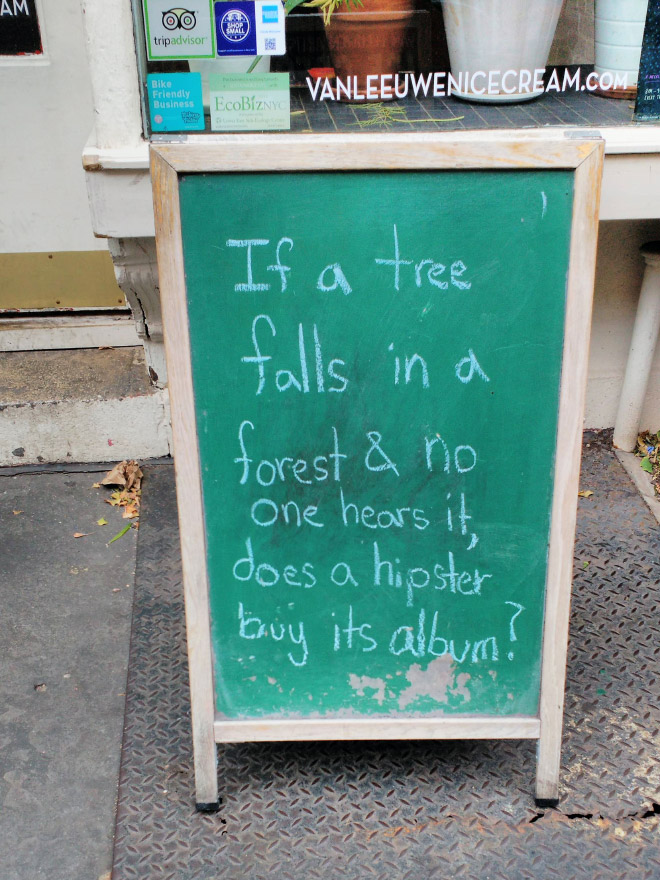 AM
tripadvisor
SHOP
SMALL
Bike
Friendly
Business
EcoBizNYC
VANLEEUWENICECREAM.COM
If a tree
falls in a
forest & no
one hears it,
does a hipster
buy its album?